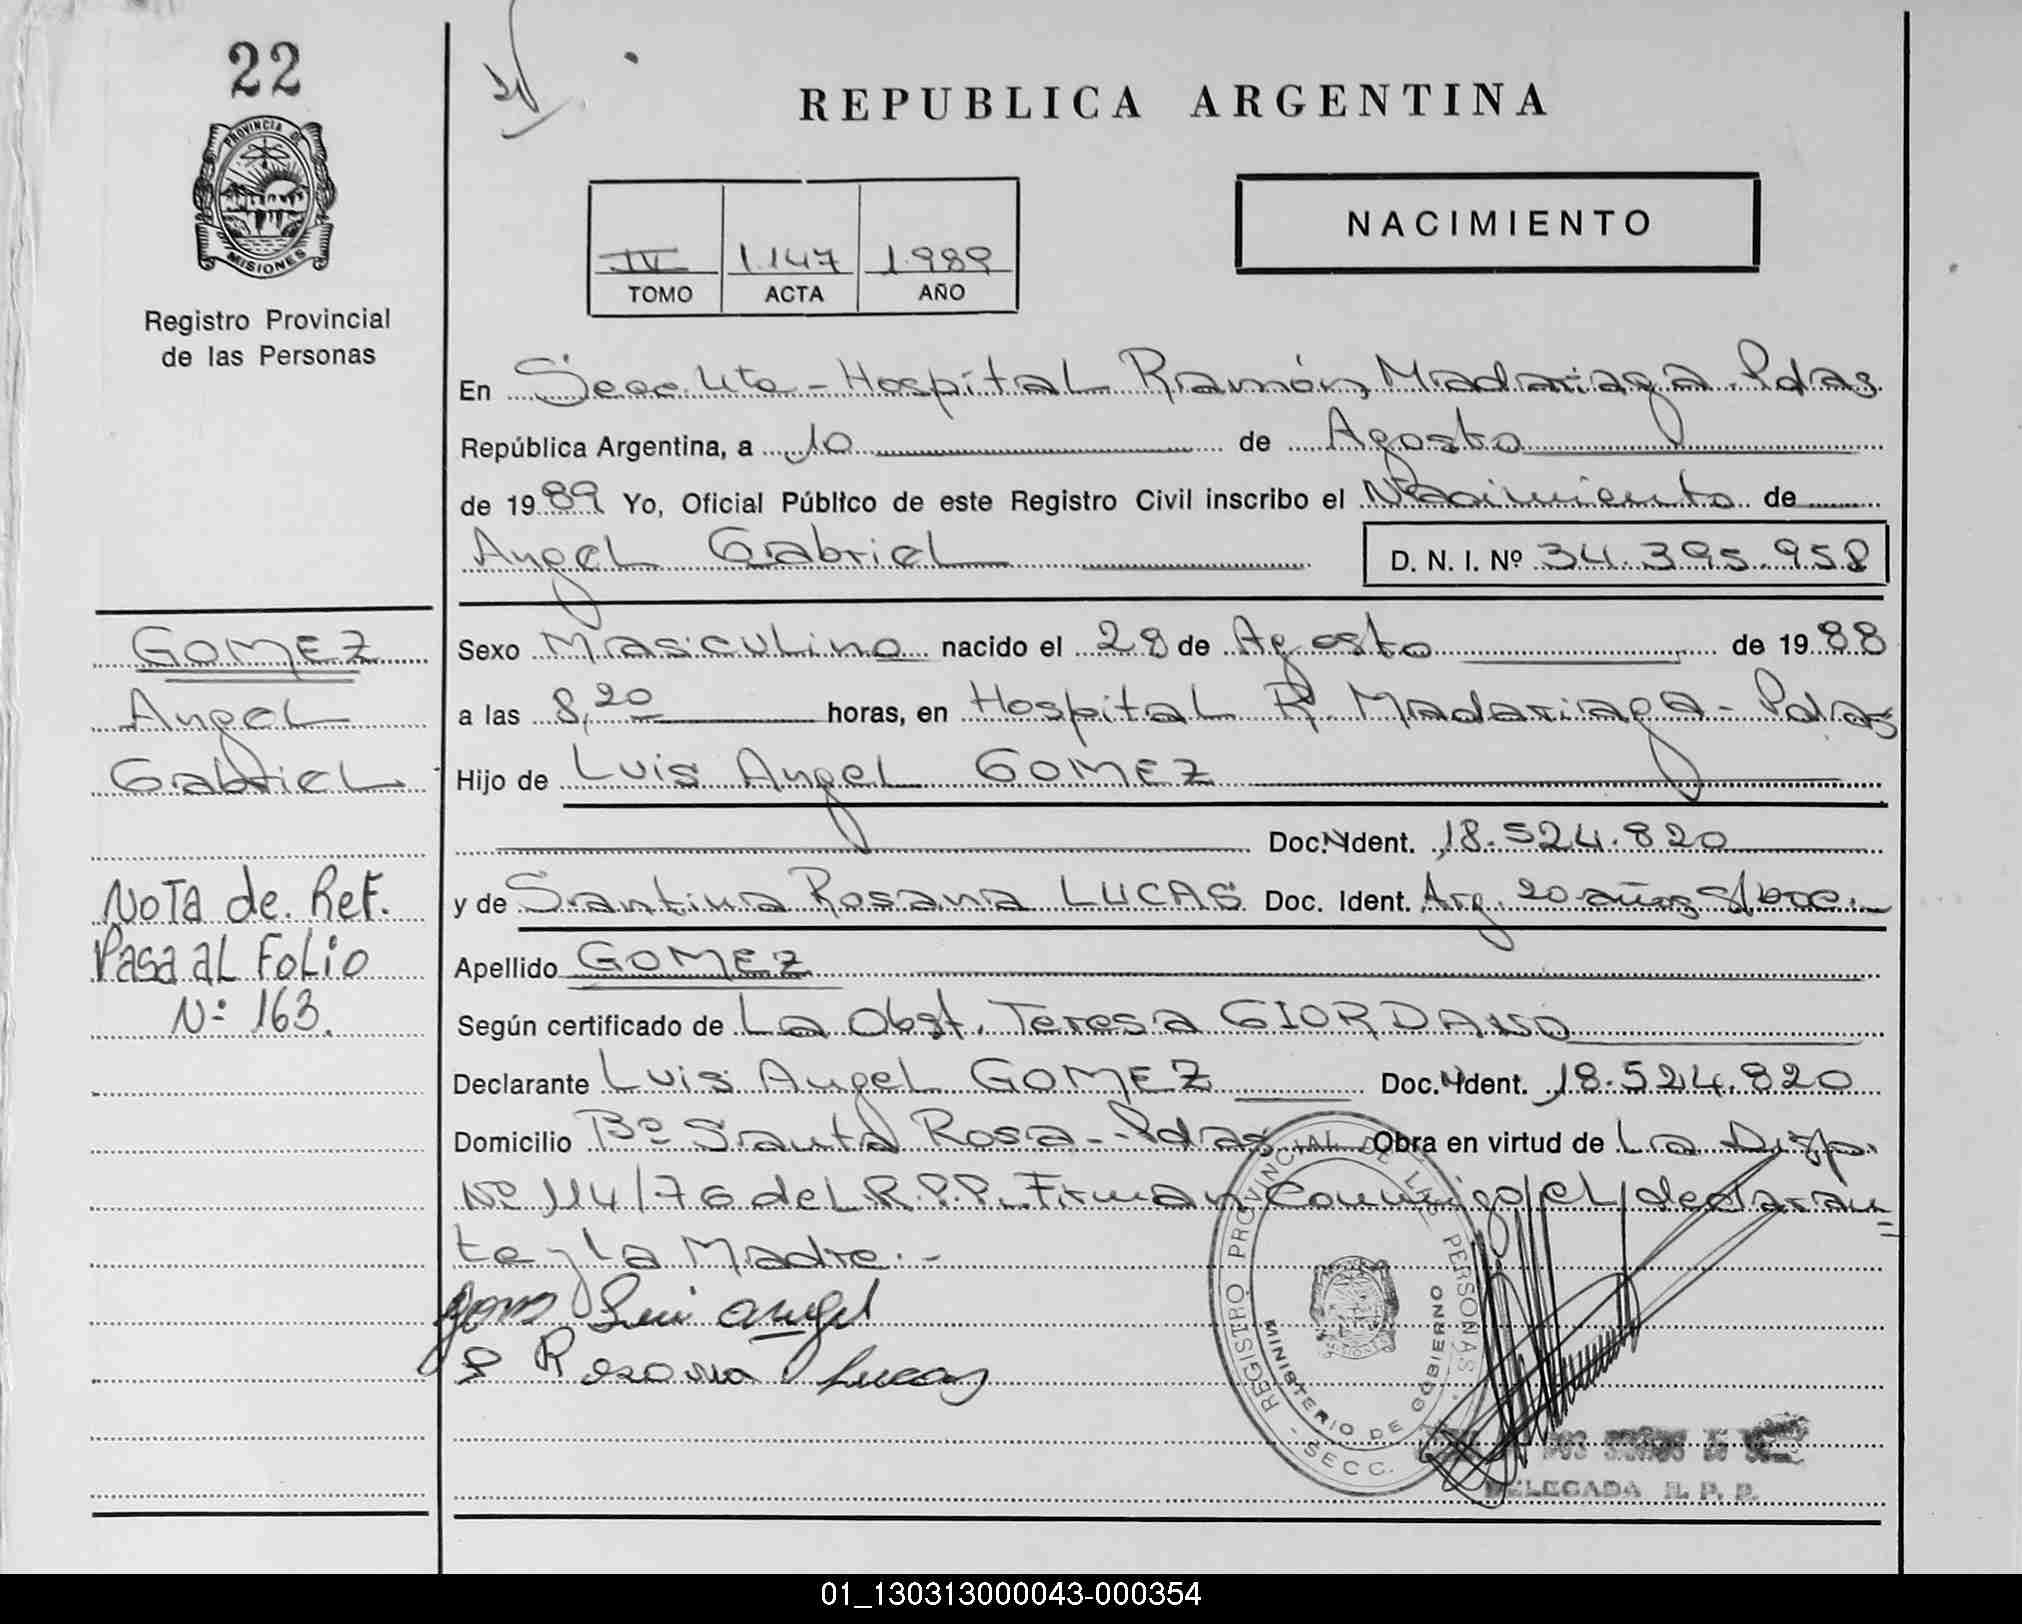 22
PROVINCIA DE
MISIONES
Registro Provincial
de las Personas
REPUBLICA ARGENTINA
NACIMIENTO
IV 1.147 1.989
TOMO ACTA AÑO
En Secc. 4ta - Hospital Ramón Madariaga Pdas.
República Argentina, a 10 de Agosto
de 1989 Yo, Oficial Público de este Registro Civil inscribo el Nacimiento de
Angel Gabriel D. N. I. Nº 34.395.958
Sexo Masculino nacido el 28 de Agosto de 1988
a las 8,20 horas, en Hospital R. Madariaga - Pdas
Hijo de Luis Angel GOMEZ
Doc. Ident. 18.524.820
y de Santina Rosana LUCAS Doc. Ident. Arg. 20 años s/doc.-
Apellido GOMEZ
Según certificado de La Obst. Teresa GIORDANO
Declarante Luis Angel GOMEZ Doc. Ident. 18.524.820
Domicilio Bº Santa Rosa - Pdas Obra en virtud de La Disp.
Nº 114/76 del R.P.P. Firman Conmigo el declaran=
te y La Madre.-
Luis angel
Rosana Lucas
GOMEZ
Angel
Gabriel
NOTA de Ref.
Pasa al Folio
Nº 163.
REGISTRO PROVINCIAL DE LAS PERSONAS
MINISTERIO DE GOBIERNO
- SECC.
DELEGADA R. P. P.
01_130313000043-000354